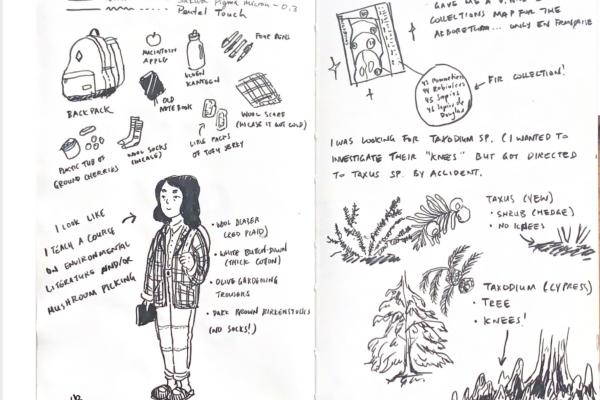 Sakura Pigma Micron - 0.3
Pentel Touch
MACINTOSH
APPLE
KLEEN
KANTEEN
FOUR PENS
BACKPACK
OLD
NOTEBOOK
WOOL SCARF
(IN CASE IT GOT COLD)
PLASTIC TUB OF
GROUND CHERRIES
WOOL SOCKS
(IN CASE)
LITTLE PACKS
OF TOFU JERKY
I LOOK LIKE
I TEACH A COURSE
ON ENVIRONMENTAL
LITERATURE AND/OR
MUSHROOM PICKING
• WOOL BLAZER
(RED PLAID)
• WHITE BUTTON-DOWN
(THICK COTTON)
• OLIVE GARDENING
TROUSERS
• DARK BROWN BIRKENSTOCKS
(NO SOCKS!)
GAVE ME A
COLLECTIONS MAP FOR THE
ARBORETUM... ONLY EN FRANÇAISE
43 Pommetiers
44 Robiniers
45 Sapins
46 Sapins de
Douglas
FIR COLLECTION!
I WAS LOOKING FOR TAXODIUM SP. (I WANTED TO
INVESTIGATE THEIR "KNEES" BUT GOT DIRECTED
TO TAXUS SP. BY ACCIDENT.
TAXUS (YEW)
• SHRUB (HEDGE)
• NO KNEES
TAXODIUM (CYPRESS)
• TREE
• KNEES!